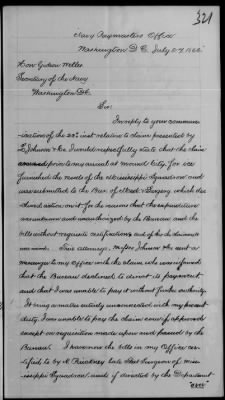 321
Navy Paymasters Office
Washington D.C. July 24 1866
Hon Gideon Welles
Secretary of the Navy
Washington D.C.
Sir:
In reply to your commun-
ication of the 23d inst relative to claim presented by
Johnson & Co. I would respectfully state that the claim
prior to my arrival at Mound City, for ice
furnished the needs of the Mississippi Squadron and
was submitted to the Bur. of Med & Surgery, which de-
clined action on it, for the reason that the expenditure
was unknown and unauthorized by the Bureau and the
bills without requisite certifications
Their attorney, Messrs Johnson & Co sent a
messenger to my office with the claim, who was informed
that the Bureau declined to direct its payment
and that I was unable to pay it without further authority.
It being a matter entirely unconnected with my present
duty, I was unable to pay the claim even if approved
except on requisition made upon and passed by the
Bureau. I have now the bills in my Office cer-
tified to by Pinkney late Fleet Surgeon of Miss-
issippi Squadron, and if directed by the Department